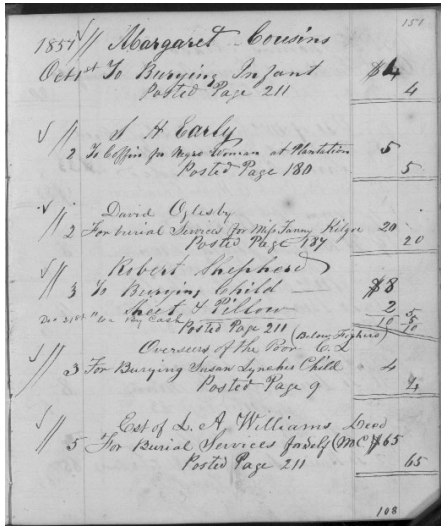 151
1857 // Margaret Cousins
Oct 1st To Burying Infant $4
Posted Page 211 4
√ // A H Early
2 To Coffin for Negro Woman at Plantation 5
Posted Page 180 5
√ // David Oglesby
2 For burial Services for Miss Fanny Kilgre 20
Posted Page 187 20
√ // Robert Shepherd
3 To Burying Child $8
Sheet & Pillow 2
Dec 31st By Cash 10 5
Posted Page 211 10
(Below Fighers)
√ // Overseers of the Poor C. L
3 For Burying Susan Lynches Child 4
Posted Page 9 4
√ // Est of L. A. Williams Decd
5 For Burial Services for Self (MC) $65
Posted Page 211 65
108